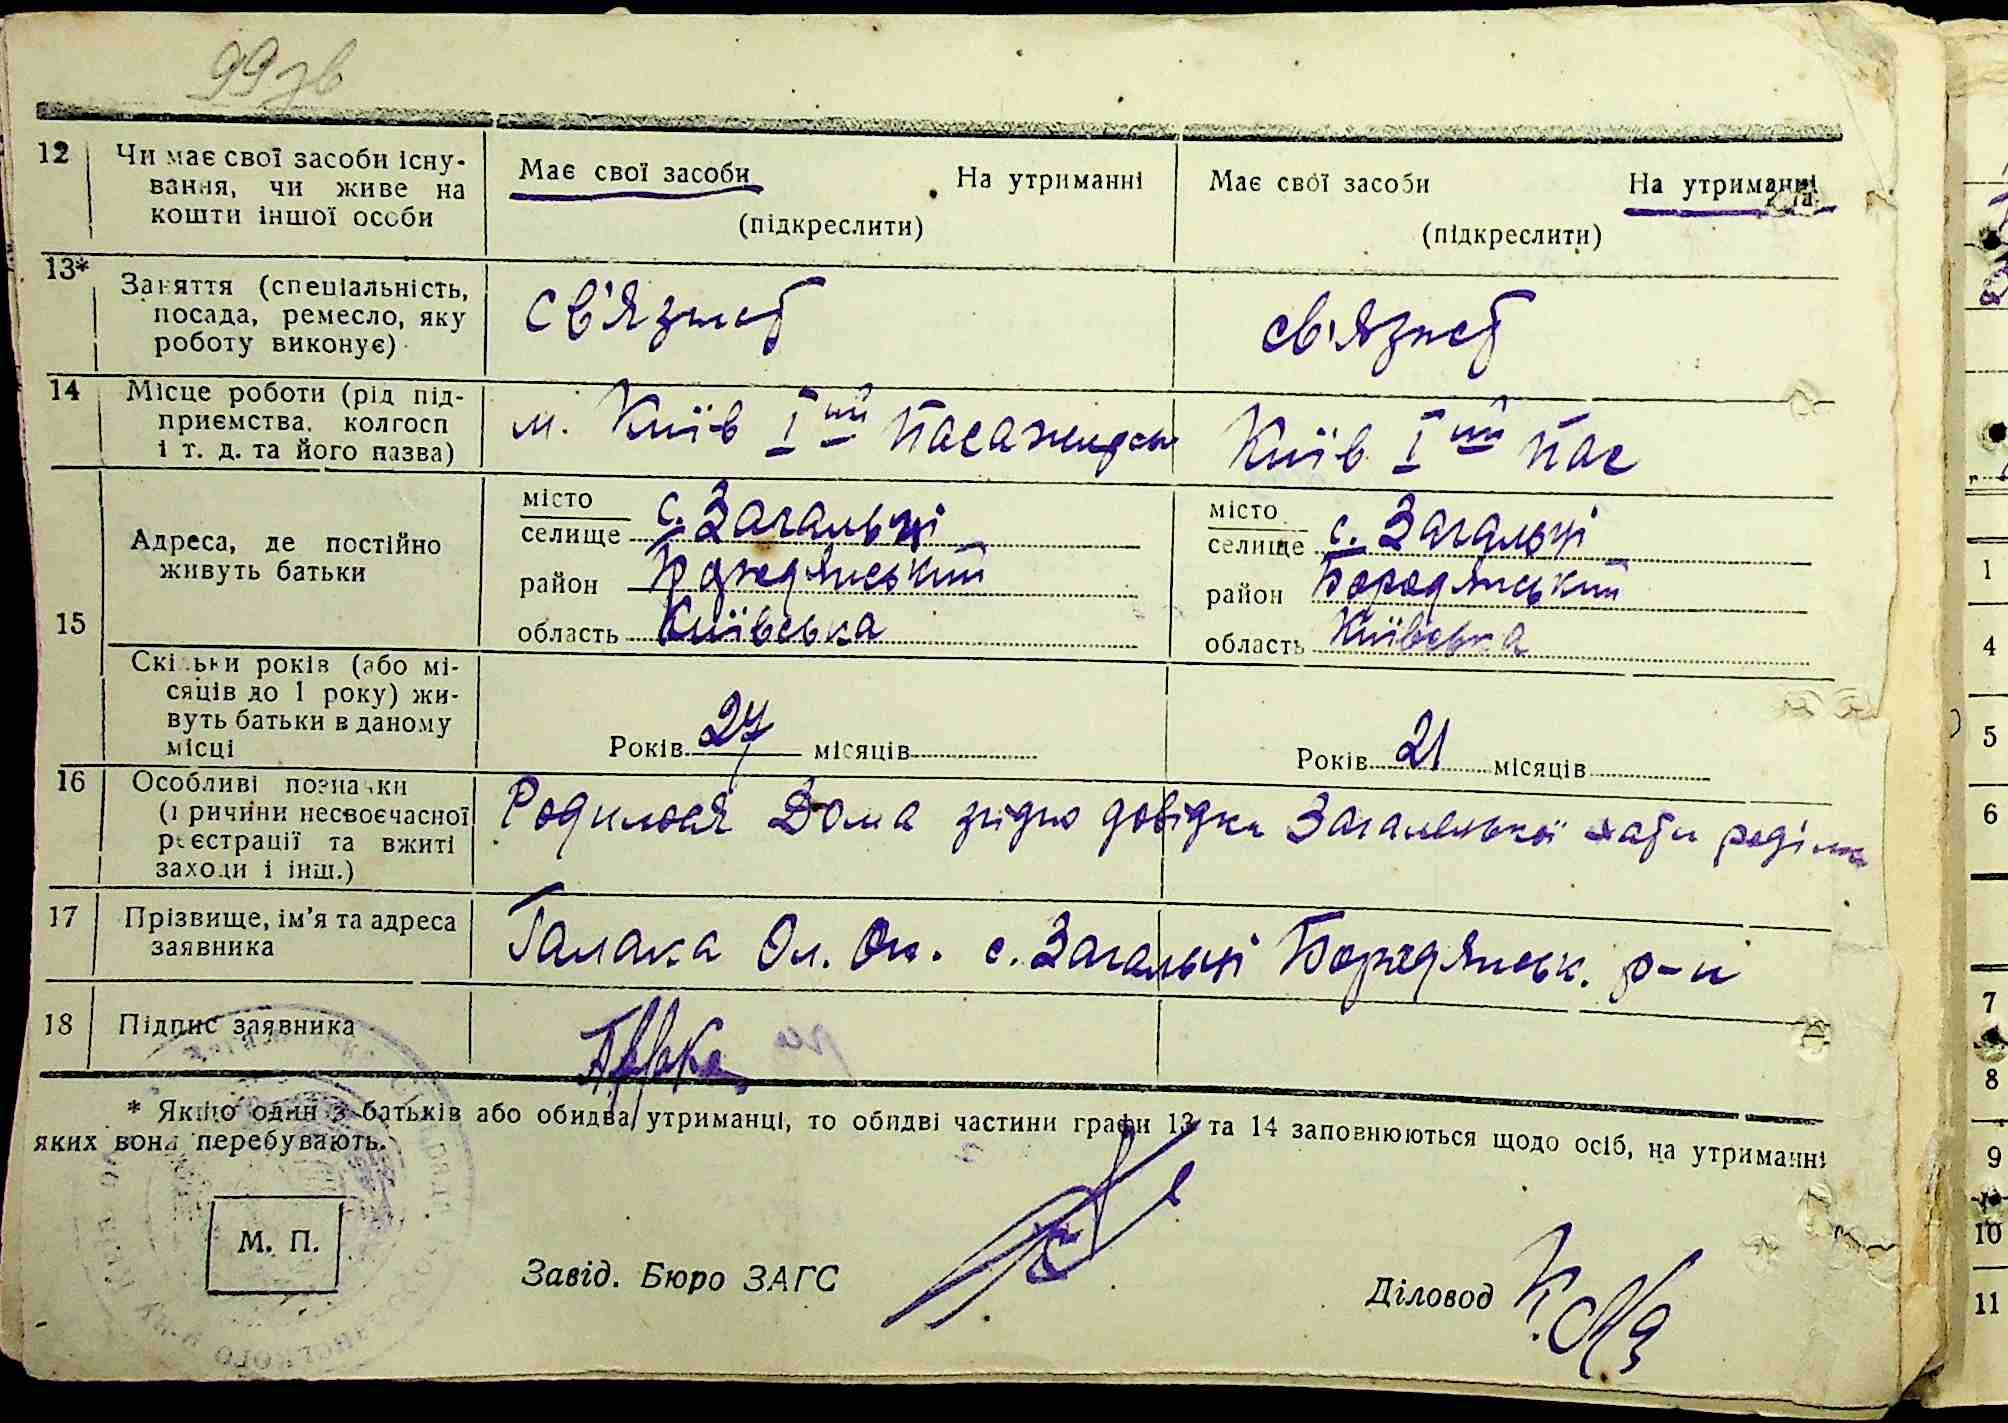 99 зв
12 Чи має свої засоби існу-
вання, чи живе на
кошти іншої особи
Має свої засоби На утриманні
(підкреслити)
Має свої засоби На утриманні
(підкреслити)
13* Заняття (спеціальність,
посада, ремесло, яку
роботу виконує)
св'язист
св'язист
14 Місце роботи (рід під-
приємства, колгосп
і т. д. та його назва)
м. Київ Iий
Київ Iий пас
15
Адреса, де постійно
живуть батьки
місто
селище с. Загальці
район Бородянський
область Київська
місто
селище с. Загальці
район Бородянський
область Київська
Скільки років (або мі-
сяців до 1 року) жи-
вуть батьки в даному
місці
Років 27 місяців
Років 21 місяців
16 Особливі позначки
(причини несвоєчасної
реєстрації та вжиті
заходи і інш.)
Родилося Дома згідно довідки Загальської хати
17 Прізвище, ім'я та адреса
заявника
Галака Ол. с. Загальці Бородянськ. р-н
18 Підпис заявника
* Якщо один з батьків або обидва утриманці, то обидві частини графи 13 та 14 заповнюються щодо осіб, на утриманні
яких вони перебувають.
М. П.
Завід. Бюро ЗАГС
Діловод
1
4
5
6
7
8
9
10
11